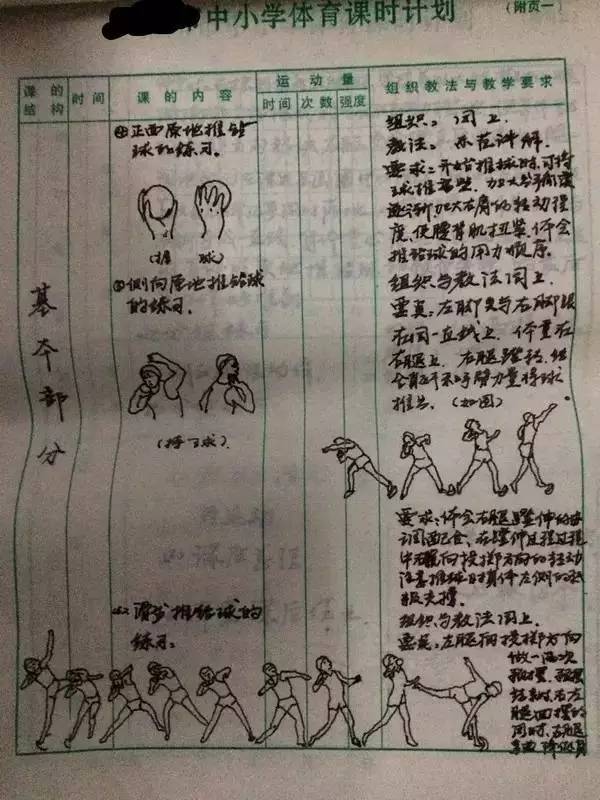 中小学体育课时计划
(附页一)
课的结构
时间
课的内容
运动量
时间
次数
强度
组织教法与教学要求
基本部分
④正面原地推铅
球的练习。
(握 球)
侧向原地推铅球
的练习。
(持球)
滑步推铅球的
练习。
组织:同上.
教法:示范讲解.
要求:开始推球时,可将
球推高些,
逐渐加大右肩的转动程
度,使腰背肌扭紧,体会
推铅球的用力顺序.
组织与教法同上.
要点:左脚尖与右脚跟
在同一直线上,体重在
右腿上,右腿蹬转,
力量将球
推出.(如图)
要求:体会右腿蹬伸的协
调配合,在蹬伸过程
向投掷方向的转动
注意推球时身体左侧的积
极支撑.
组织与教法同上.
要点:左腿向投掷方向
做一两次
预摆,预摆
结束时,在左
腿回摆的
同时,右腿